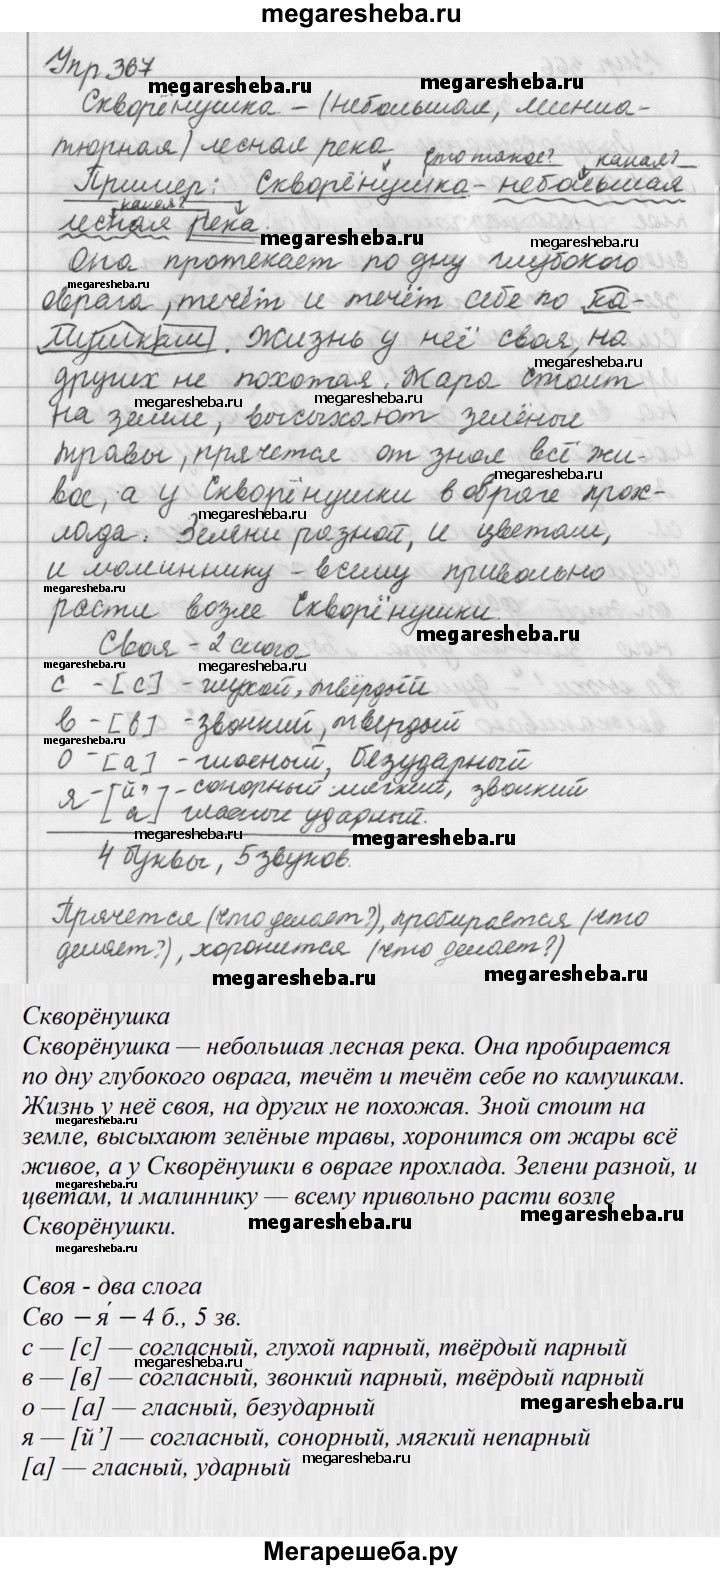 megaresheba.ru
Упр 367
megaresheba.ru
Скворёнушка – (небольшая, миниа-
megaresheba.ru
тюрная) лесная река
что такое? какая?
Пример: Скворёнушка – небольшая
megaresheba.ru
какая?
лесная река.
megaresheba.ru
megaresheba.ru
Она протекает по дну глубокого
megaresheba.ru
оврага, течёт и течёт себе по ка-
мушкам. Жизнь у неё своя, на
megaresheba.ru
других не похожая. Жара стоит
megaresheba.ru
на земле, высыхают зелёные
травы, прячется от зноя всё жи-
megaresheba.ru
вое, а у Скворёнушки в овраге прох-
megaresheba.ru
лада. Зелени разной, и цветам,
и малиннику – всему привольно
megaresheba.ru
расти возле Скворёнушки.
megaresheba.ru
Своя – 2 слога
с – [с] – глухой, твёрдый
в – [в] – звонкий, твердый
megaresheba.ru
о – [а] – гласный, безударный
я – [й'] – сонорный мягкий, звонкий
[а] гласные ударный.
megaresheba.ru
megaresheba.ru
4 буквы, 5 звуков.
Прячется (что делает?), пробирается (что
делает?), хоронится (что делает?)
megaresheba.ru
megaresheba.ru
Скворёнушка
Скворёнушка — небольшая лесная река. Она пробирается
по дну глубокого оврага, течёт и течёт себе по камушкам.
Жизнь у неё своя, на других не похожая. Зной стоит на
megaresheba.ru
земле, высыхают зелёные травы, хоронится от жары всё
живое, а у Скворёнушки в овраге прохлада. Зелени разной, и
megaresheba.ru
цветам, и малиннику — всему привольно расти возле
megaresheba.ru
megaresheba.ru
Скворёнушки.
megaresheba.ru
Своя - два слога
Сво – я́ – 4 б., 5 зв.
с — [с] — согласный, глухой парный, твёрдый парный
megaresheba.ru
в — [в] — согласный, звонкий парный, твёрдый парный
megaresheba.ru
о — [а] — гласный, безударный
я — [й’] — согласный, сонорный, мягкий непарный
megaresheba.ru
[а] — гласный, ударный
Мегарешеба.ру